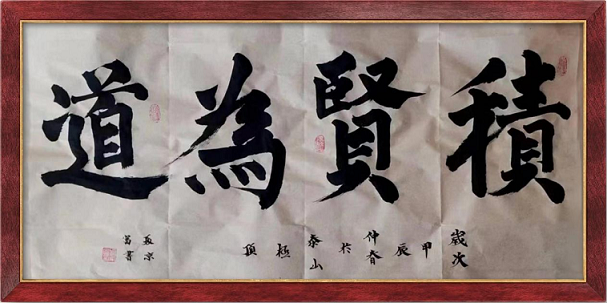 積賢為道
歲次甲辰仲春於泰山極頂
書